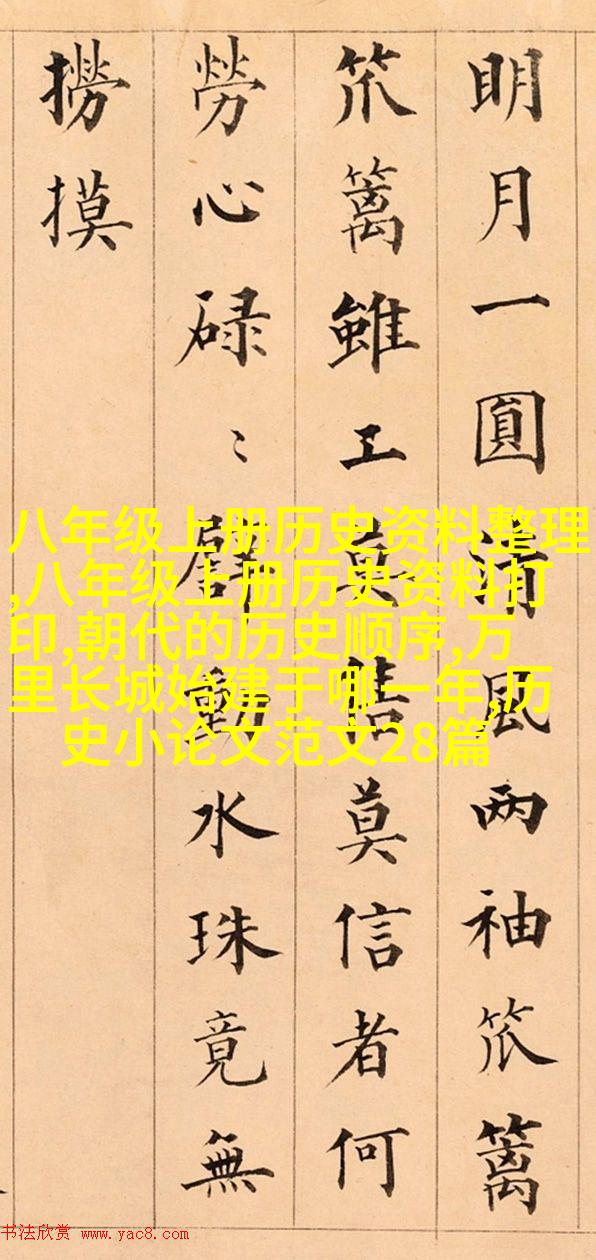 明月一圓清風两袖笊篱
笊篱雖工莫售莫信者何
勞心碌〻劈動水珠竟無
撈摸
八年级上册历史资料整理
,八年级上册历史资料打
印,朝代的历史顺序,万
里长城始建于哪一年,历
史小论文范文28篇
书法欣赏 www.yac8.com